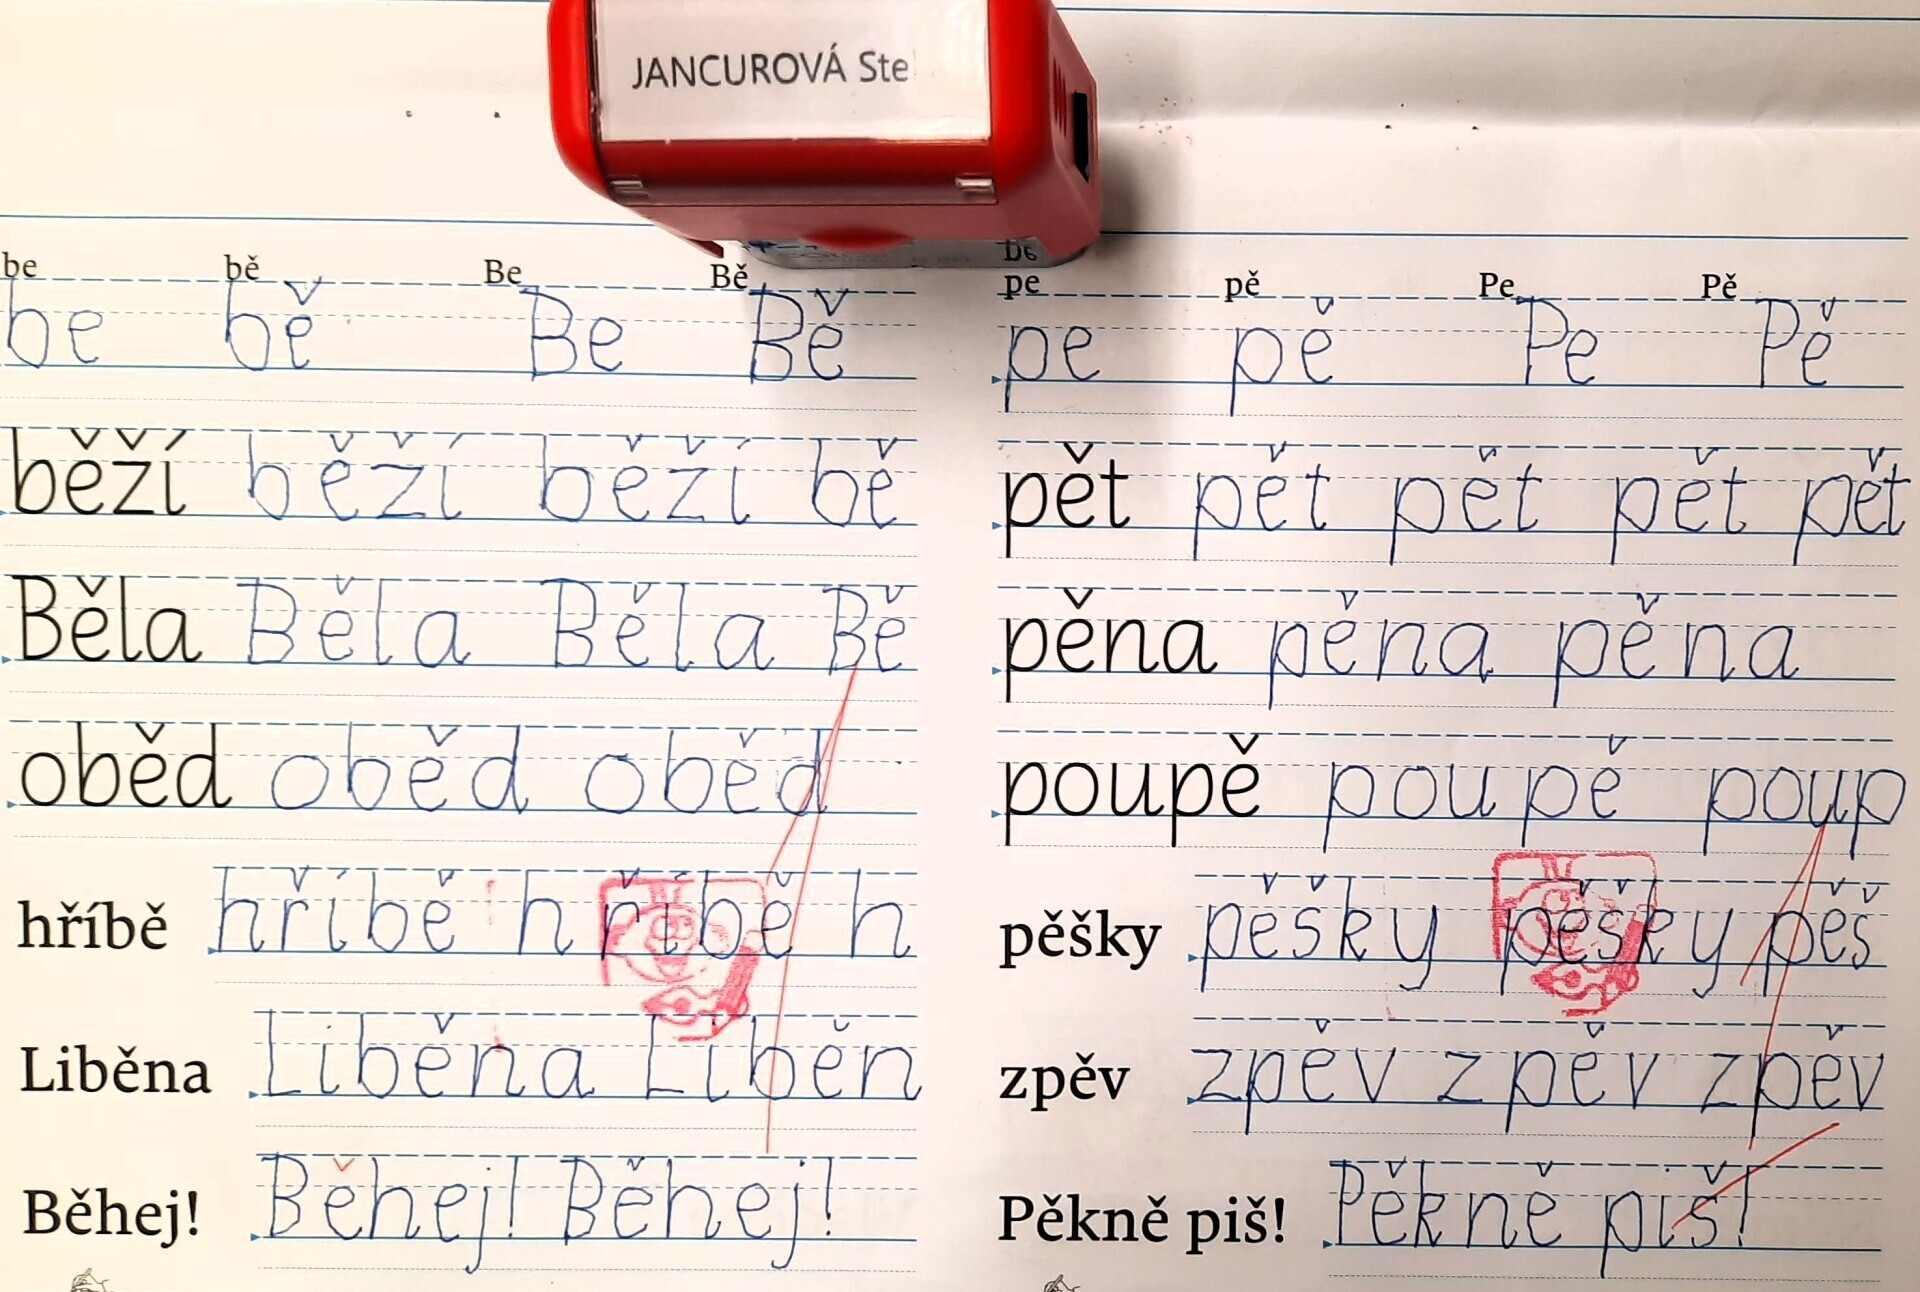 JANCUROVÁ Ste
be bě Be Bě
be bě Be Bě
běží běží běží bě
Běla Běla Běla Bě
oběd oběd oběd
hříbě hříbě hříbě h
Liběna Liběna Liběn
Běhej! Běhej! Běhej!
pe pě Pe Pě
pe pě Pe Pě
pět pět pět pět pět
pěna pěna pěna
poupě poupě poup
pěšky pěšky pěšky pěš
zpěv zpěv zpěv zpěv
Pěkně piš! Pěkně piš!